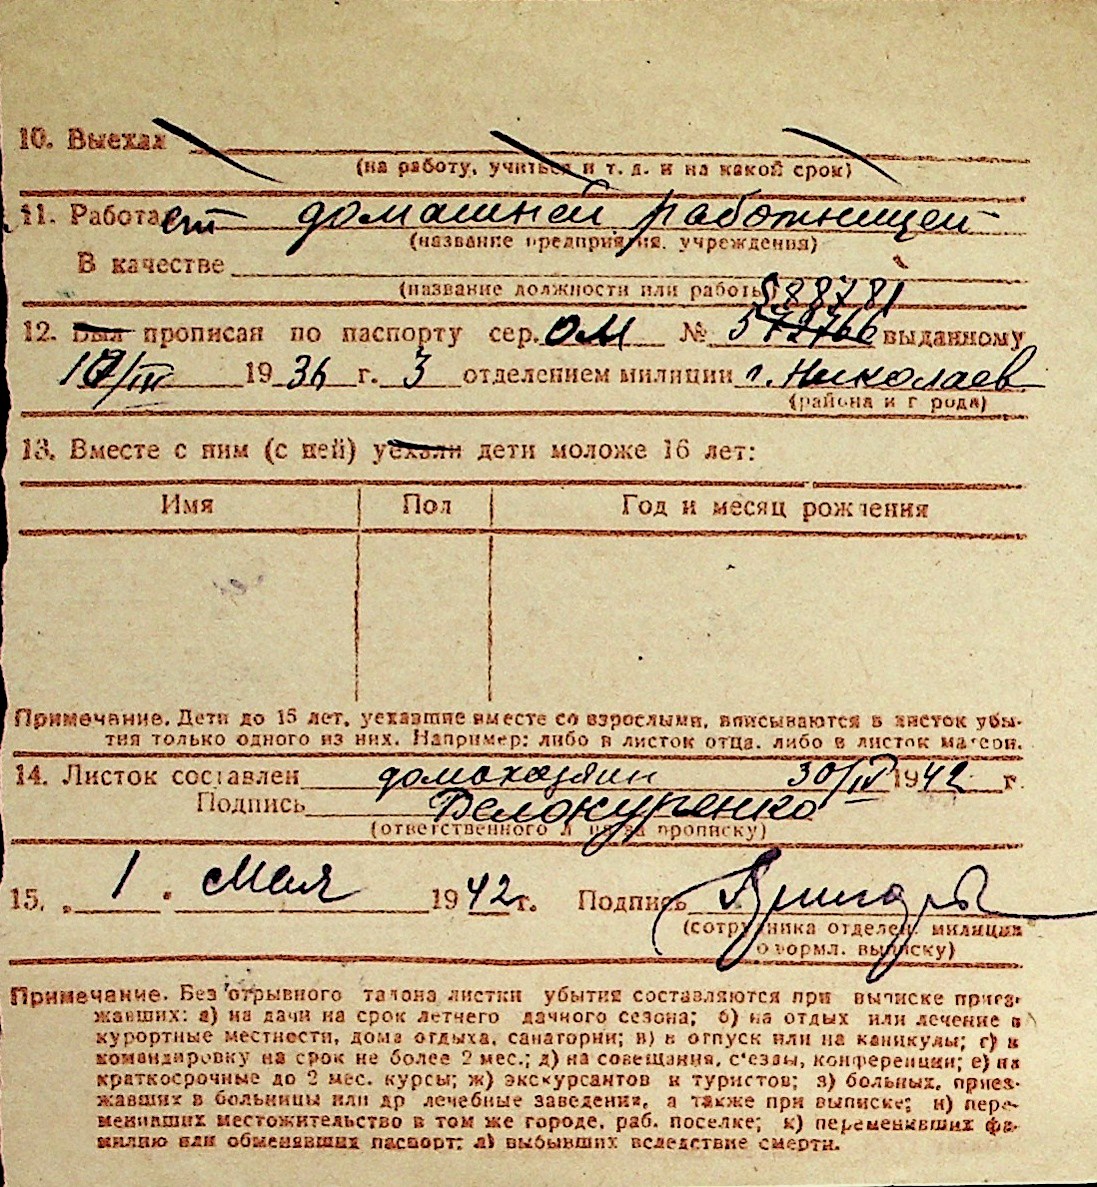 10. Выехал
(на работу, учиться и т. д. и на какой срок)
11. Работает домашней работницей
(название предприятия, учреждения)
В качестве
(название должности или работы)
588781
12. Был прописан по паспорту сер. ОМ № 572766 выданному
10/III 1936 г. 3 отделением милиции г. Николаев
(района и г рода)
13. Вместе с ним (с ней) уехали дети моложе 16 лет:
Имя Пол Год и месяц рождения
Примечание. Дети до 15 лет, уехавшие вместе со взрослыми, вписываются в листок убы-
тия только одного из них. Например: либо в листок отца, либо в листок матери.
14. Листок составлен домохазяин 30/IV 1942 г.
Подпись Белокуренко
(ответственного л ца за прописку)
15. „ 1 " Мая 1942 г. Подпись
(сотрудника отделен. милиции
оформл. выписку)
Примечание. Без отрывного талона листки убытия составляются при выписке приез-
жавших: а) на дачи на срок летнего дачного сезона; б) на отдых или лечение в
курортные местности, дома отдыха, санатории; в) в отпуск или на каникулы; г) в
командировку на срок не более 2 мес.; д) на совещания, с'езды, конференции; е) на
краткосрочные до 2 мес. курсы; ж) экскурсантов и туристов; з) больных, приез-
жавших в больницы или др лечебные заведения, а также при выписке; и) пере-
менивших местожительство в том же городе, раб. поселке; к) переменивших фа-
милию или обменявших паспорт; л) выбывших вследствие смерти.